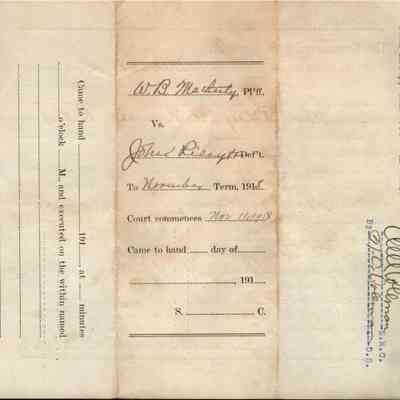 W. B. Mac, Pl'ff.
Vs.
John Def't.
To November Term, 1918
Court commences Nov 11, 1918
Came to hand ____ day of ____
____, 191__
S. ____ C.
Came to hand ____ 191__, at ____ minutes
____ o'clock ____ M., and executed on the within named
Coleman S.R.C.
By Coleman D.S.